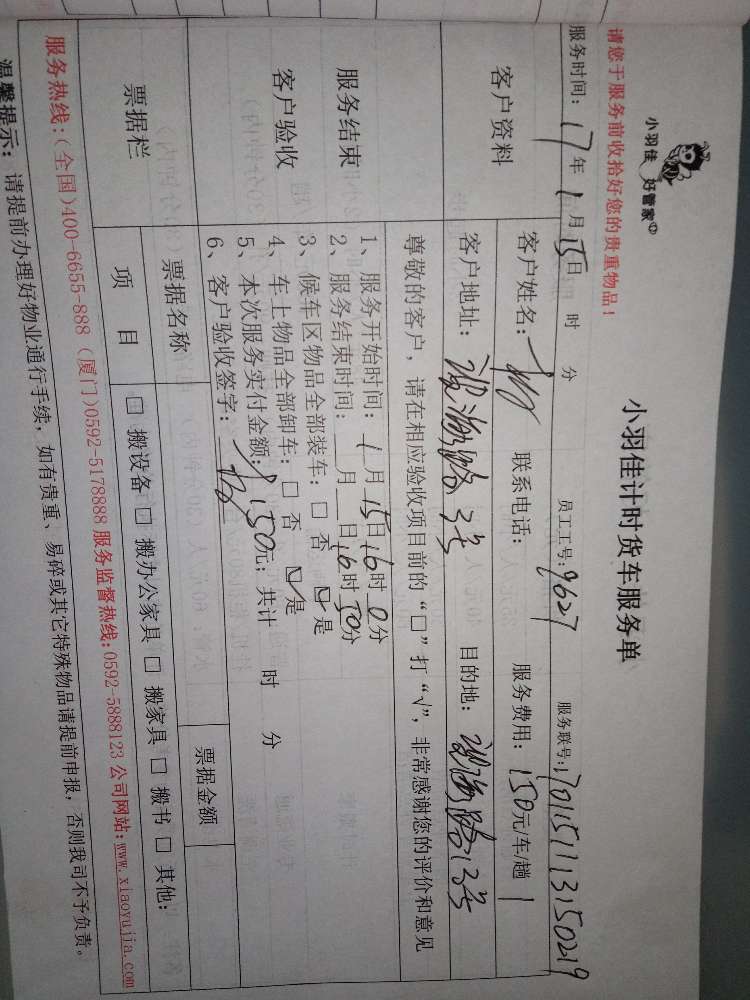 小羽佳 好管家
小羽佳计时货车服务单
请您于服务前收拾好您的贵重物品!
服务时间: 17年1月15日 时 分 员工工号: 9627 服务联号: 1701151113150219
客户资料
客户姓名: 联系电话: 服务费用: 150元/车/趟 1
客户地址: 观海路2号 目的地: 观海路12号
尊敬的客户,请在相应验收项目前的“□”打“√”,非常感谢您的评价和意见
服务结束
客户验收
1、服务开始时间: 1月15日16时0分
2、服务结束时间: 月 日16时50分
3、候车区物品全部装车: □ 否 ☑ 是
4、车上物品全部卸车: □ 否 ☑ 是
5、本次服务实付金额: 150元; 共计 时 分
6、客户验收签字:
票据栏
票据名称 票据金额
项 目 □ 搬设备 □ 搬办公家具 □ 搬家具 □ 搬书 □ 其他:
服务热线:(全国)400-6655-888 (厦门)0592-5178888 服务监督热线:0592-5888123 公司网站:www.xiaoyujia.com
温馨提示: 请提前办理好物业通行手续,如有贵重、易碎或其它特殊物品请提前申报,否则我司不予负责。